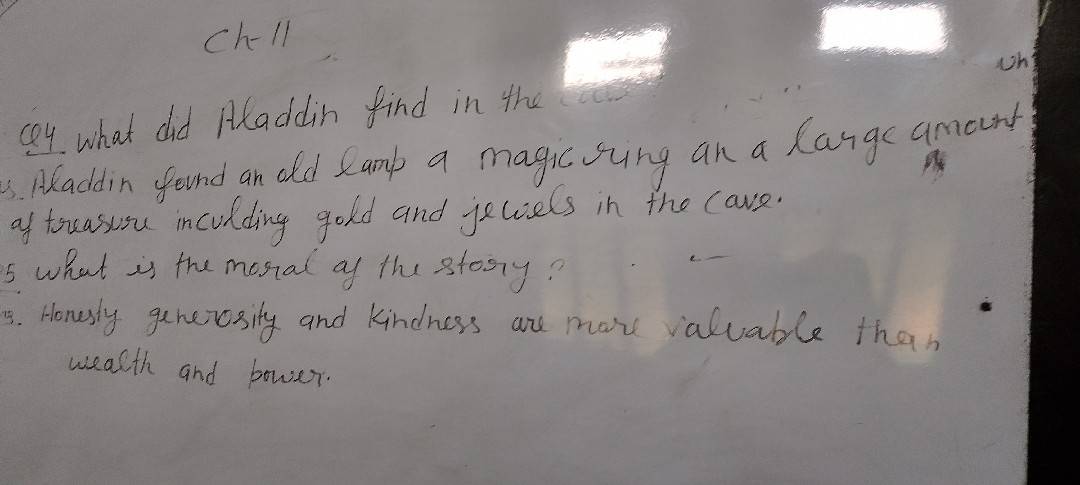 Ch-11
Q4 what did Aladdin find in the
s. Aladdin found an old lamp a magic ring an a large amount
of treasure inculding gold and jewels in the cave.
5 what is the moral of the story?
s. Honesty generosity and kindness are more valuable than
wealth and power.